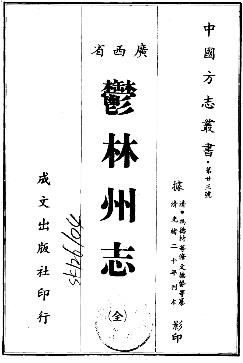 中國方志叢書・第廿三號
據
清・馮德材等修文德馨等纂
清光緒二十年刊本
影印
廣西省
鬱林州志
(全)
成文出版社印行